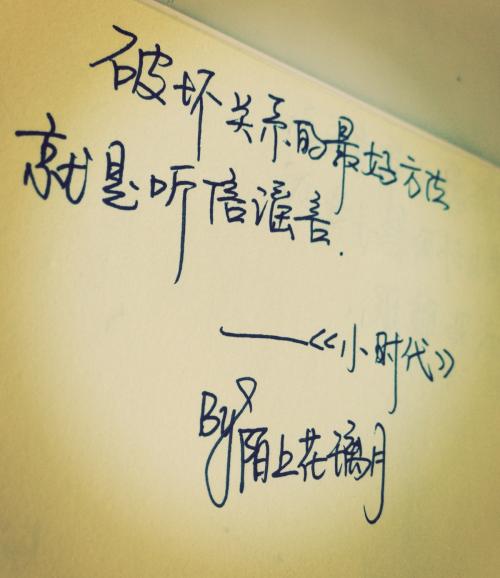 破坏关系的最好方法
就是听信谣言.
——《小时代》
By陌上花璃月